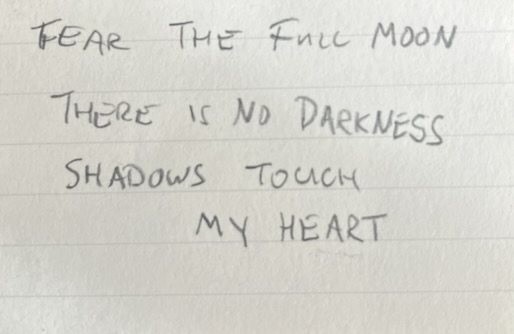 FEAR THE FULL MOON
THERE IS NO DARKNESS
SHADOWS TOUCH
MY HEART